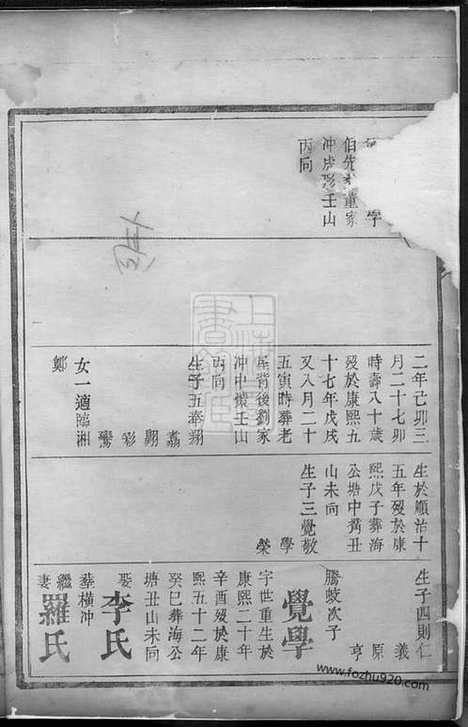 字
伯先
董家
冲
壬山
丙向
二年己卯三
月二十七卯
時壽八十歲
歿於康熙五
十七年戊戌
又八月二十
五寅時葬老
屋背後劉家
冲中懷壬山
丙向
生子五奉翔
翥
翶
彩
鸞
女一適臨湘
鄭
生於順治十
五年歿於康
熙戊子葬海
公塘中嘴丑
山未向
生子三覺敬
學
榮
生子四則仁
義
原
亨
騰蛟次子
覺學
字世重生於
康熙二十年
辛酉歿於康
熙五十二年
癸巳葬海公
塘丑山未向
娶
李氏
葬橫冲
繼妻
羅氏
www.fozhu920.com